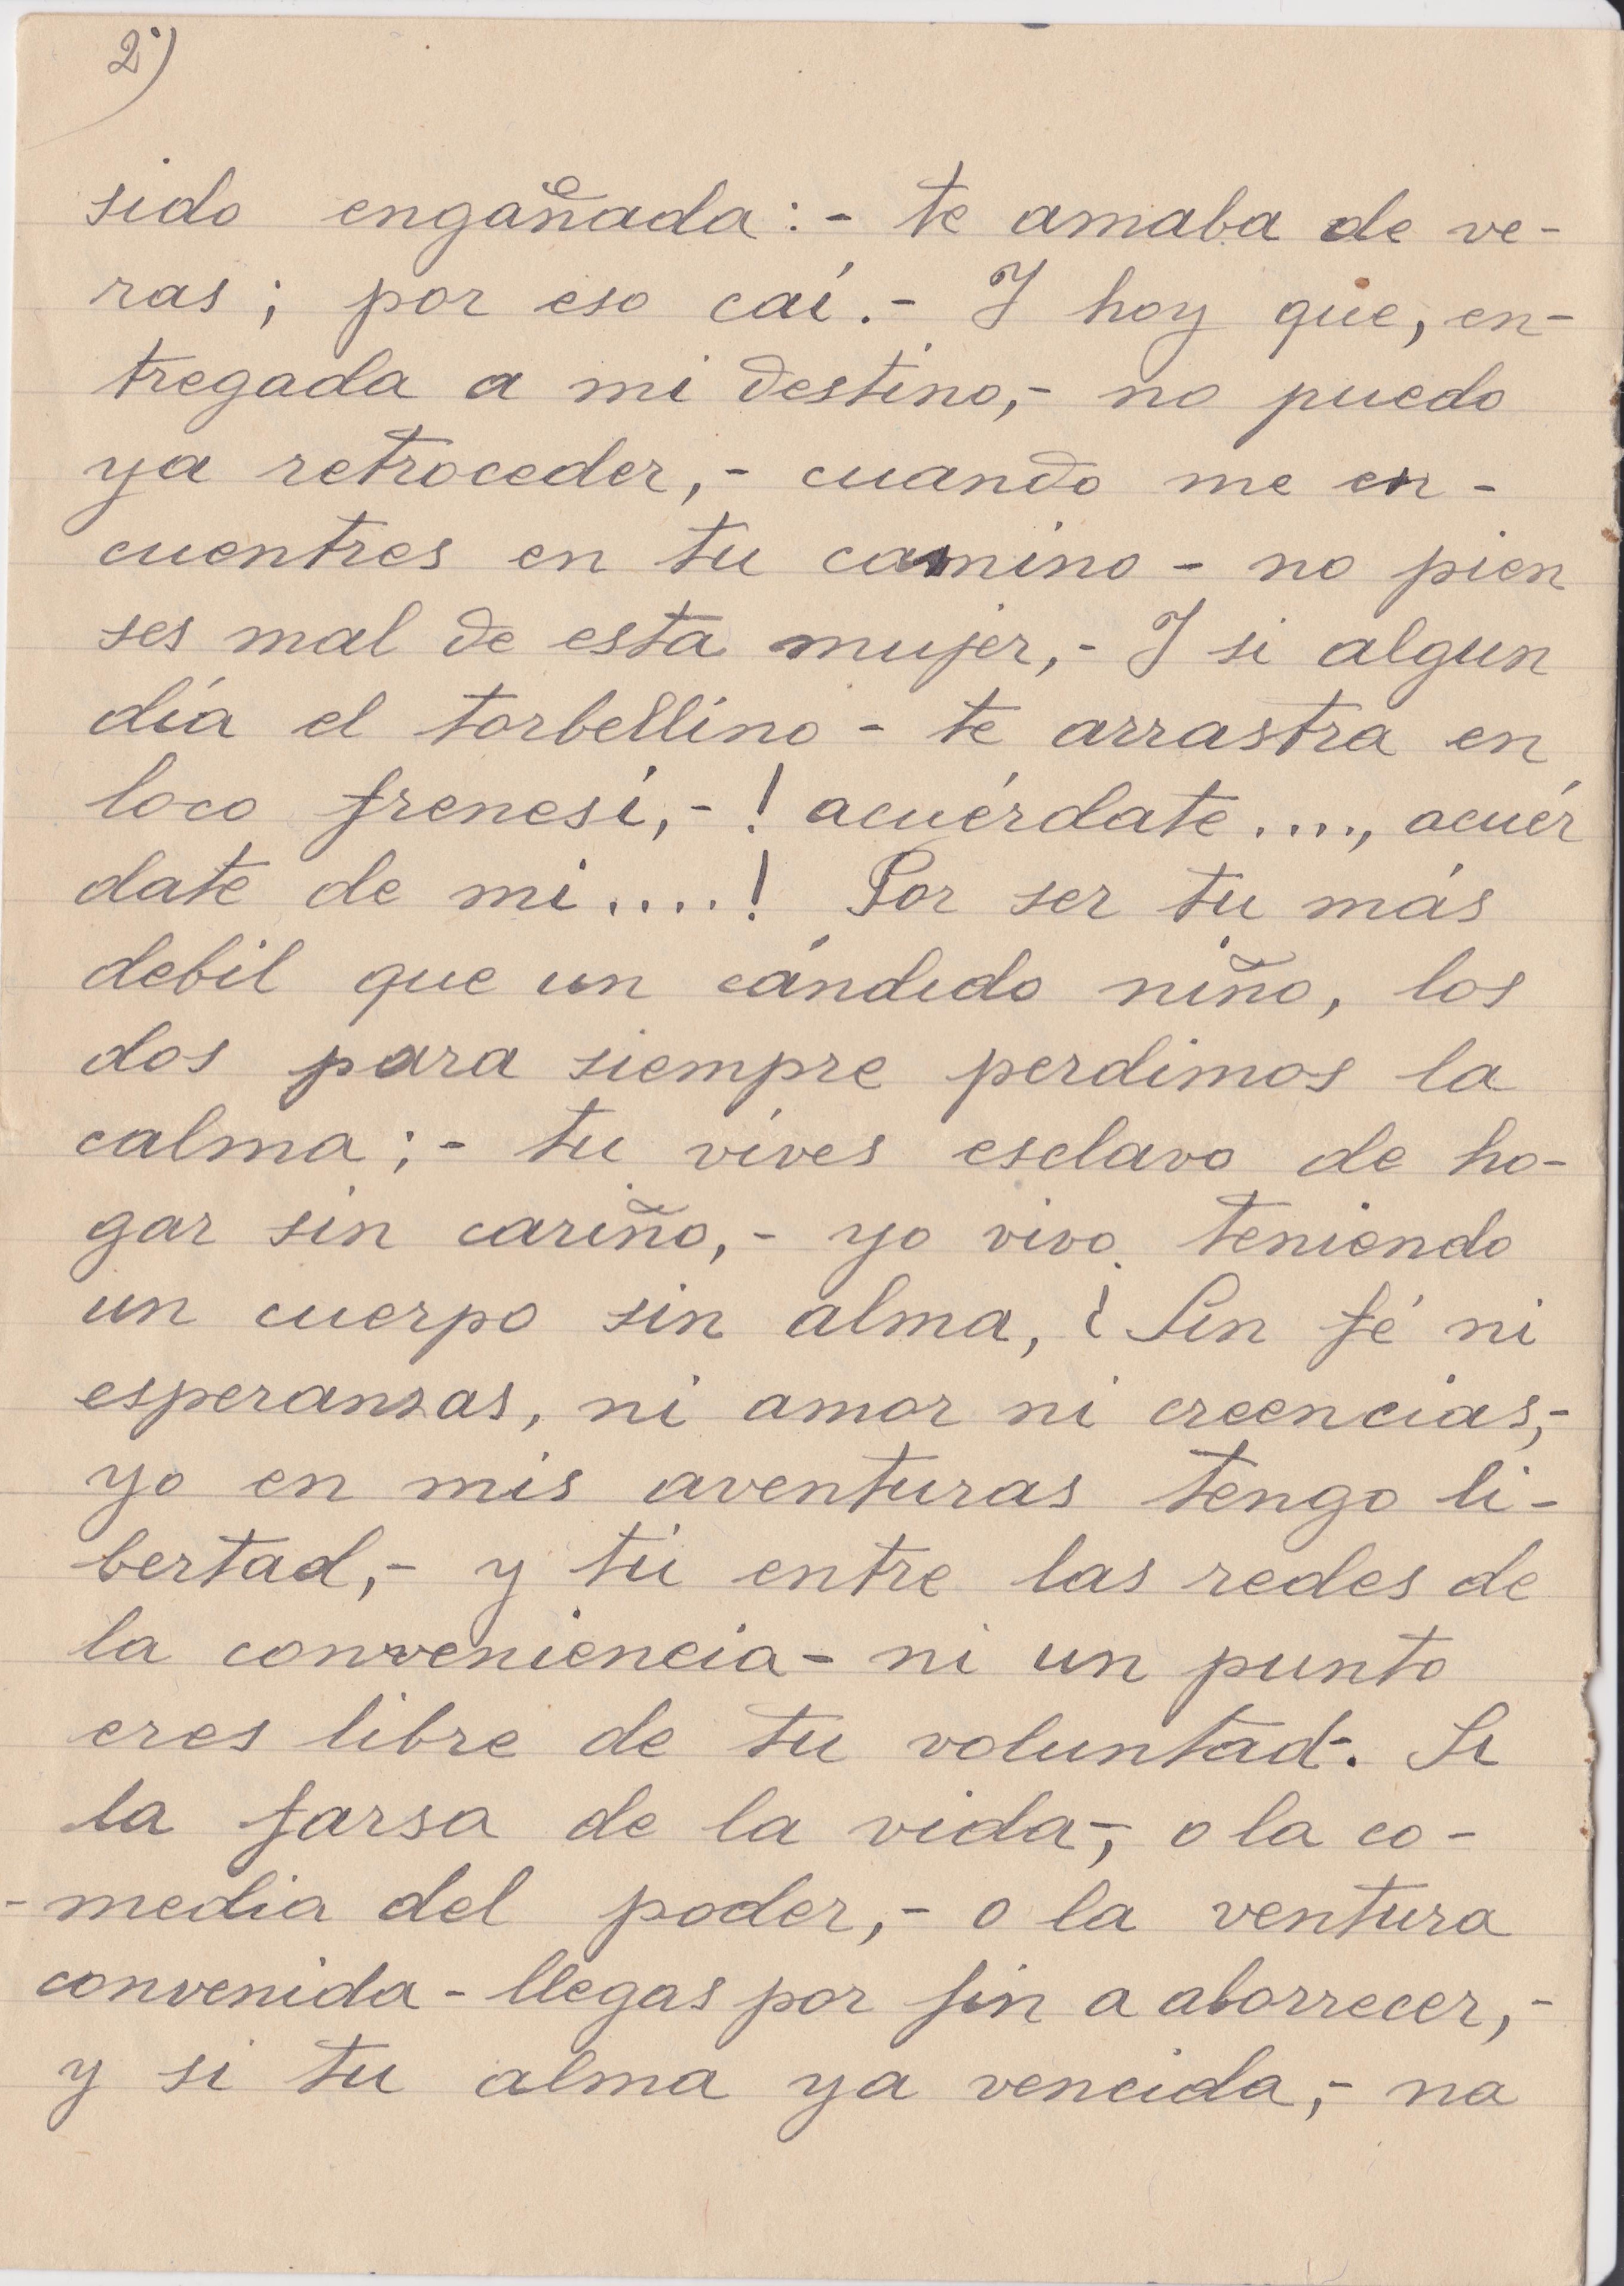 2º)
sido engañada:- te amaba de ve-
ras; por eso caí.- Y hoy que, en-
tregada a mi destino,- no puedo
ya retroceder,- cuando me en-
cuentres en tu camino - no pien
ses mal de esta mujer,- Y si algun
día el torbellino - te arrastra en
loco frenesí,- ! acuérdate...., acuér
date de mi....! Por ser tu más
debil que un cándido niño, los
dos para siempre perdimos la
calma;- tu vives esclavo de ho-
gar sin cariño,- yo vivo teniendo
un cuerpo sin alma, ¿ Sin fé ni
esperanzas, ni amor ni creencias,-
yo en mis aventuras tengo li-
bertad,- y tú entre las redes de
la conveniencia - ni un punto
eres libre de tu voluntad-. Si
la farsa de la vida-, o la co-
-media del poder,- o la ventura
convenida - llegas por fin a aborrecer,-
y si tu alma ya vencida,- na